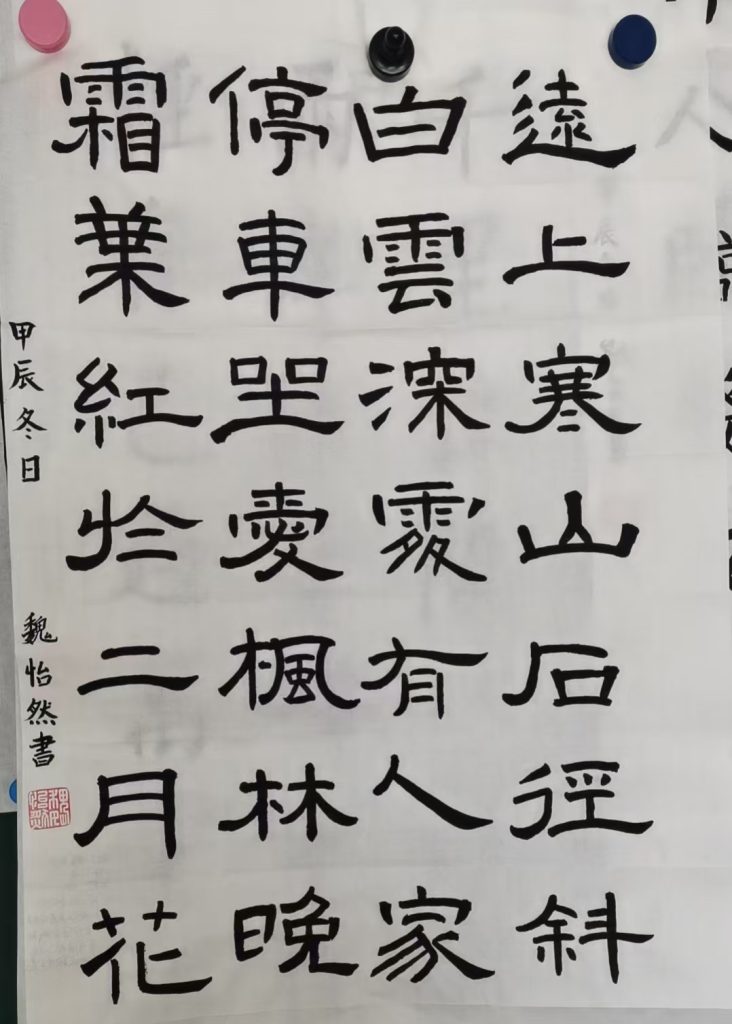 遠上寒山石徑斜
白雲深處有人家
停車坐愛楓林晚
霜葉紅於二月花
甲辰冬日
魏怡然書